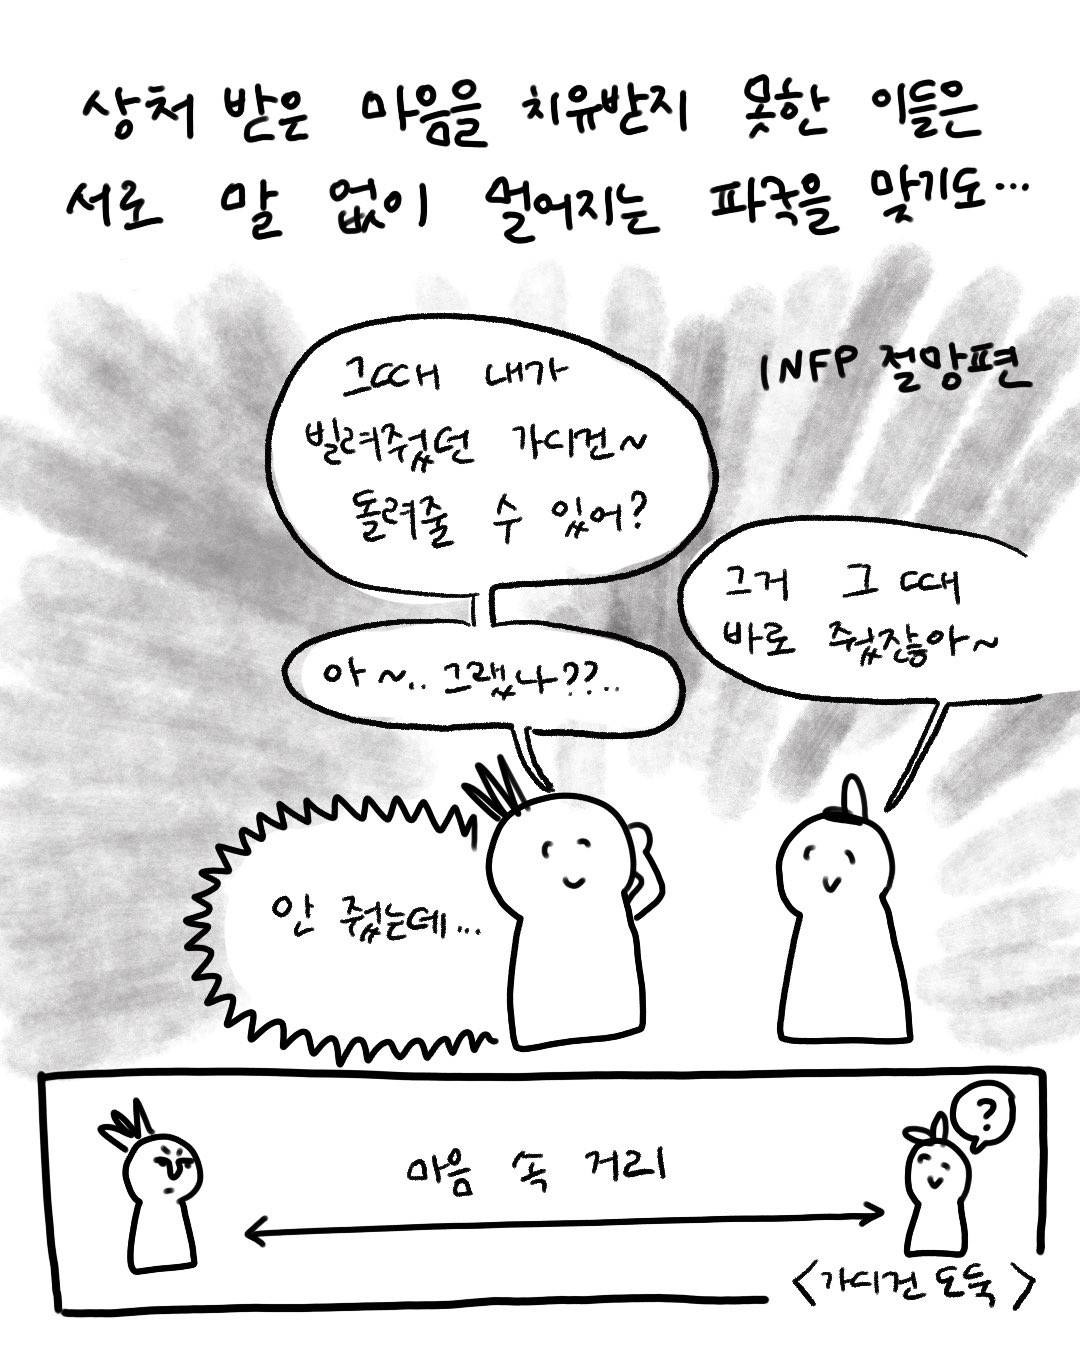 상처 받은 마음을 치유받지 못한 이들은
서로 말 없이 멀어지는 파국을 맞기도...
INFP 절망편
그때 내가
빌려줬던 가디건~
돌려줄 수 있어?
그거 그 때
바로 줬잖아~
아~.. 그랬나??..
안 줬는데...
?
마음 속 거리
<가디건 도둑>